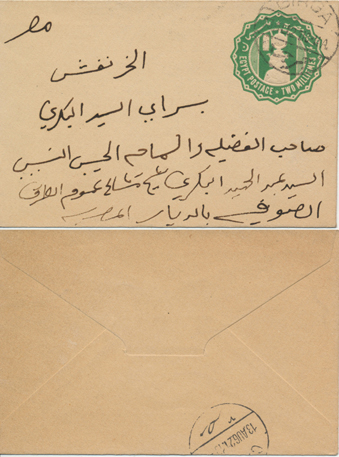 مصر
الخرنفش
بسراي السيد البكري
صاحب الفضيلة والسماحة الحسيب النسيب
السيد عبد الحميد البكري شيخ مشايخ عموم الطرق
الصوفية بالديار المصرية
GIRGA
EGYPT POSTAGE • TWO MILLIEMES
13 AU 62